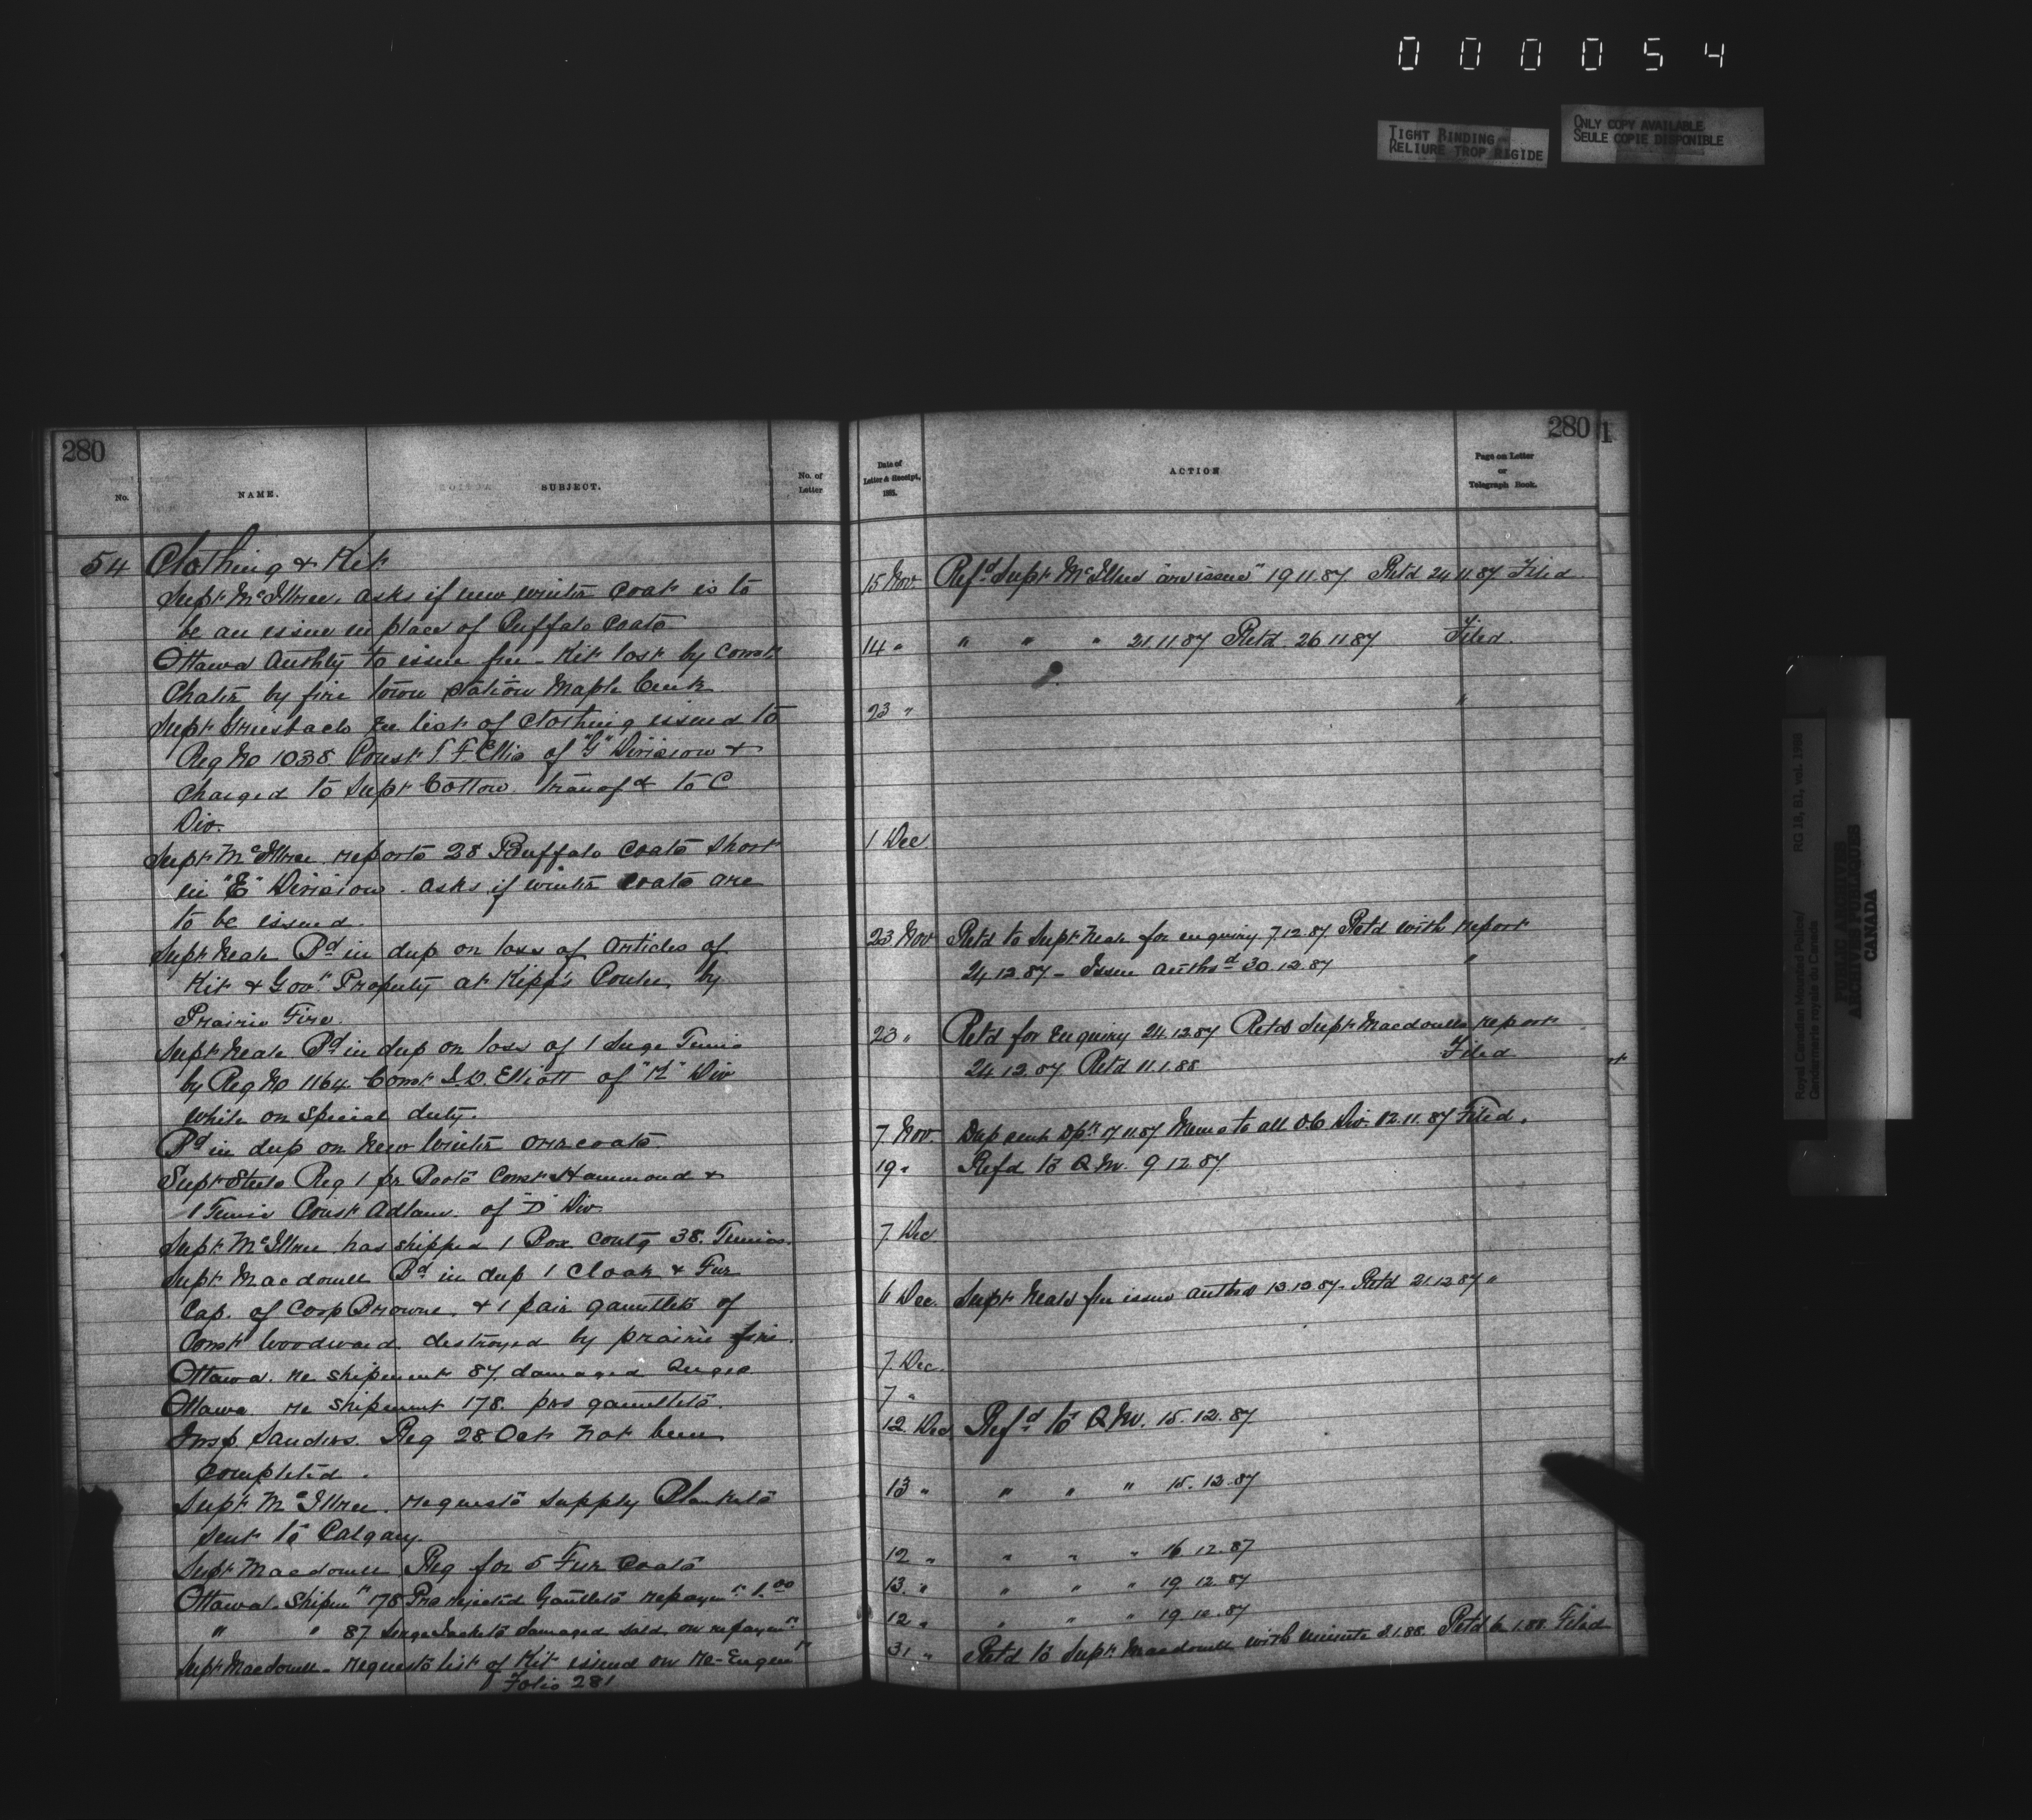 000054
TIGHT BINDING
RELIURE TROP RIGIDE
ONLY COPY AVAILABLE
SEULE COPIE DISPONIBLE
280
No.
NAME.
SUBJECT.
No. of
Letter
54 Clothing & Kit
Supt McIllree, asks if new winter coat is to
be an issue in place of Buffalo Coats
Ottawa Authty to issue free - Kit lost by Const
Chater by fire town station Maple Creek
Supt Griesbach re list of Clothing issued to
Reg No 1038 Const T F Ellis of "G" Division &
Charged to Supt Cotton transfd to C
Div.
Supt McIllree reports 28 Buffalo Coats short
in "E" Division - asks if winter coats are
to be issued.
Supt Neale Bd in dup on loss of articles of
Kit & Govt Property at Kipp's Coulee by
Prairie Fire.
Supt Neale Bd in dup on loss of 1 Serge Tunic
by Reg No 1164 Const Elliott of "K" Div
while on special duty.
Bd in dup on New Winter overcoats.
Supt Steele Req 1 pr Boots Const Hammond &
1 Tunic Const Adlam of "D" Div
Supt McIllree has shipped 1 Box contg 38 Tunics.
Supt Macdonell Bd in dup 1 Cloak & Fur
Cap. of Corp Browne & 1 pair gauntlets of
Const Woodward destroyed by prairie fire.
Ottawa re shipment 87 damaged Serges
Ottawa re shipment 178 prs gauntlets.
Insp Sanders Req 28 Oct not been
completed.
Supt McIllree requests supply Blankets
sent to Calgary
Supt Macdonell Req for 5 Fur Coats
Ottawa Shipmt 178 Prs rejected Gauntlets repaymt 1.00
" " 87 Serge Jackets damaged sold on repaymt
Supt Macdonell requests list of Kit issued on Re-Engmt
Folio 281
Date of
Letter & Receipt,
1885.
ACTION
280
Page on Letter
or
Telegraph Book.
1
15 Nov. Refd Supt McIllree "are issue" 19 11.87 Retd 24 11.87 Filed
14 " " " " 21.11.87 Retd. 26 11 87 Filed.
23 " "
1 Dec
23 Nov Retd to Supt Neale for enquiry 7.12.87 Retd with report
24.12.87 - Issue authsd 30.12.87 "
23 " Retd for Enquiry 24.12.87 Retd Supt Macdonells report
24.12.87 Retd 11.1.88 Filed
7 Nov. Dup sent 17 11.87 Memo to all O.C. Div. 12.11.87 Filed.
19 " Refd to Q.M. 9 12.87.
7 Dec
6 Dec. Supt Neale free issue authsd 13.12.87 - Retd 21.12.87 "
7. Dec.
7 "
12 Dec Refd to Q.M. 15.12.87
13 " " " " 15.12.87
12 " " " " 16 12.87
13 " " " " 19 12.87
12 " " " " 19 12.87
31 " Retd to Supt Macdonell with minute 3.1.88. Retd 6 1.88. Filed
Royal Canadian Mounted Police/
Gendarmerie royale du Canada
RG 18, B1, vol. 1988
PUBLIC ARCHIVES
ARCHIVES PUBLIQUES
CANADA